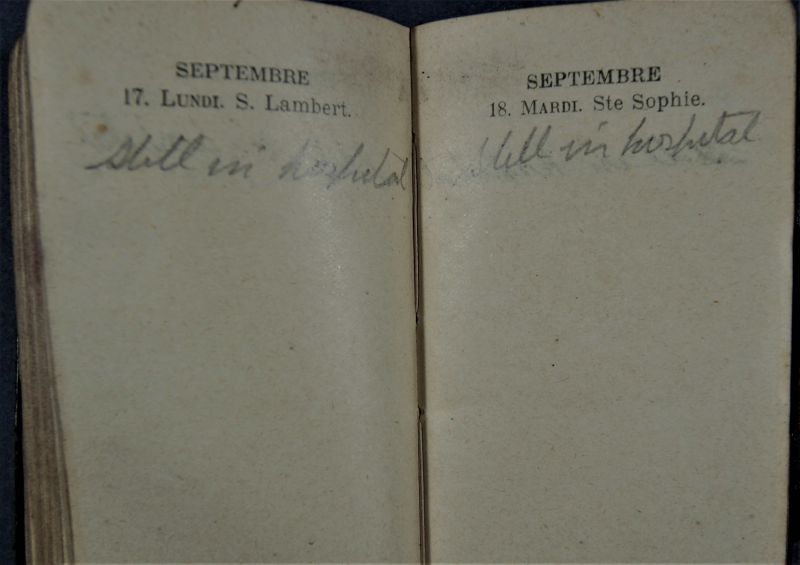 SEPTEMBRE
17. LUNDI. S. Lambert.
Still in hospital
SEPTEMBRE
18. MARDI. Ste Sophie.
Still in hospital